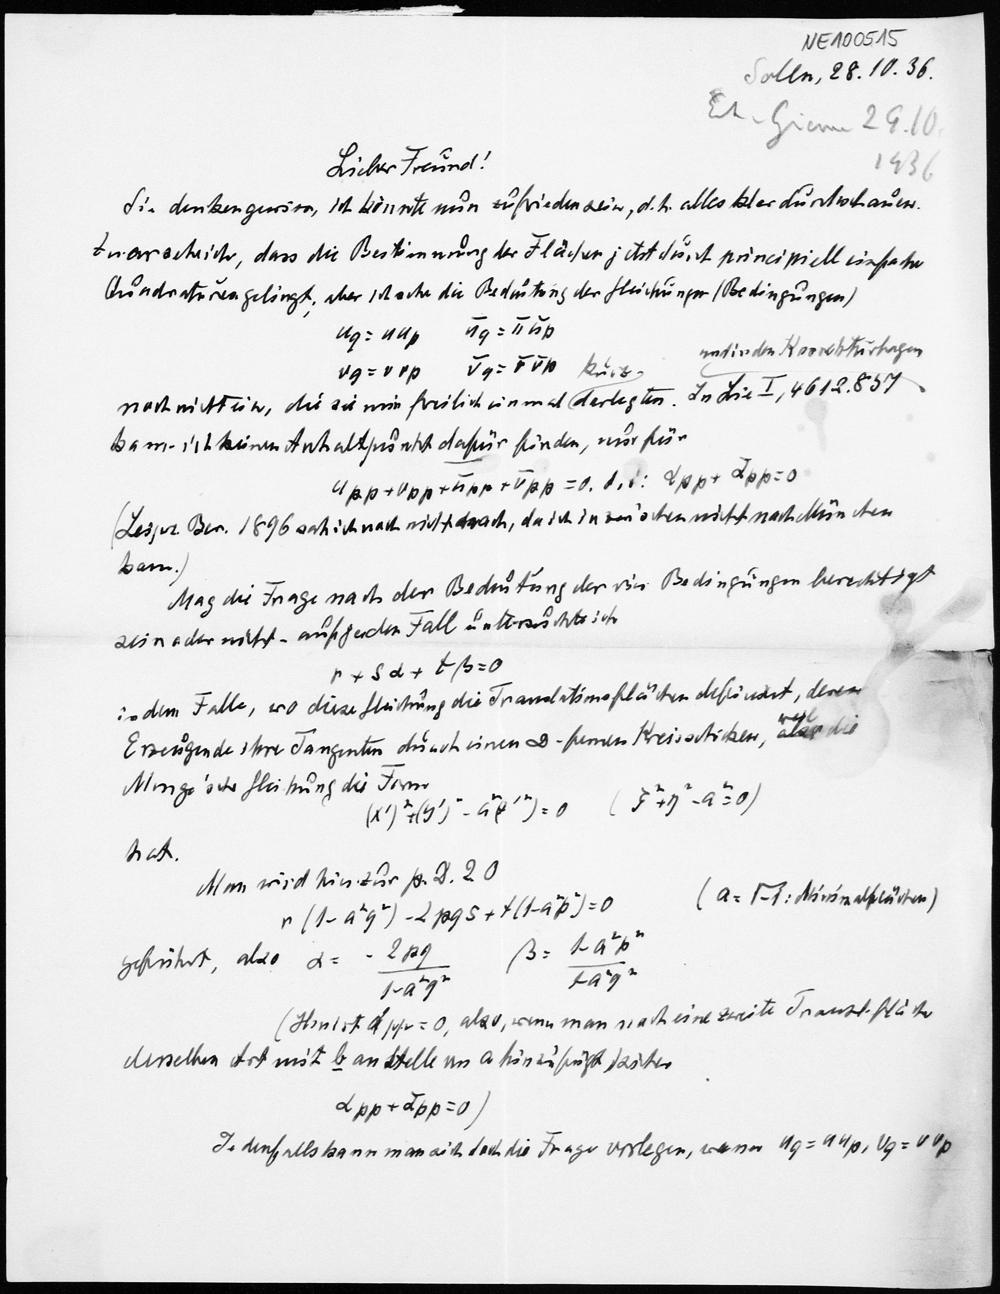 NE100515
Solln, 28.10.36.
29.10.
1936
Lieber Freund!
Sie denken gewiss, ich könnte nun zufrieden sein, d.h. alles klar durchschauen.
Zwar sehe ich, dass die Bestimmung der Flächen jetzt durch principiell einfache
Quadraturen gelingt, aber ich sehe die Bedeutung der Gleichungen (Bedingungen)
u_q = u u_p ū_q = ū ū_p
v_q = v v_p v̄_q = v̄ v̄_p
und in den Korrekturbogen
kurz
noch nicht ein, die sie mir freilich einmal darlegten. In Lie I, 461 2. 857
kann ich keinen Anhaltspunkt dafür finden, nur für
u_pp + v_pp + ū_pp + v̄_pp = 0. d.i: α_pp + ᾱ_pp = 0
(Leipz. Ber. 1896 sah ich noch nicht nach, da ich inzwischen nicht nach München
kam.)
Mag die Frage nach der Bedeutung der vier Bedingungen berechtigt
sein oder nicht - auf jeden Fall untersuchte ich
r + s α + t β = 0
in dem Falle, wo diese Gleichung die Translationsflächen definiert, deren
Erzeugende ihre Tangenten durch einen ∞-fernen Kreis schicken, weil die
Monge'sche Gleichung die Form
(x')² + (y')² - a² z'² = 0 (ξ² + η² - a² = 0)
hat.
Man wird hier zur p. D. 2 O
r (1 - a²q²) - 2pqs + t (1 - a²p²) = 0 (a = √-1 : Minimalflächen)
geführt, also α = - 2pq / 1 - a²q² β = 1 - a²p² / 1 - a²q²
(Hier ist α_pp = 0, also, wenn man noch eine zweite Transl. fläche
derselben Art mit b an Stelle von a hinzufügt, sicher
α_pp + ᾱ_pp = 0)
Jedenfalls kann man sich doch die Frage vorlegen, wann u_q = u u_p, v_q = v v_p